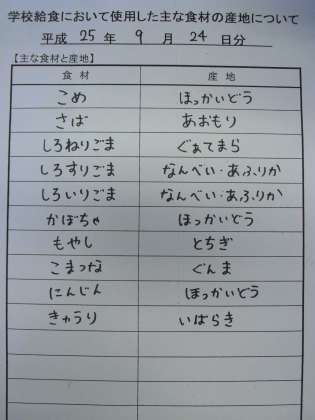 学校給食において使用した主な食材の産地について
平成 25 年 9 月 24 日分
【主な食材と産地】
食材 産地
こめ ほっかいどう
さば あおもり
しろねりごま ぐぁてまら
しろすりごま なんべい・あふりか
しろいりごま なんべい・あふりか
かぼちゃ ほっかいどう
もやし とちぎ
こまつな ぐんま
にんじん ほっかいどう
きゅうり いばらき